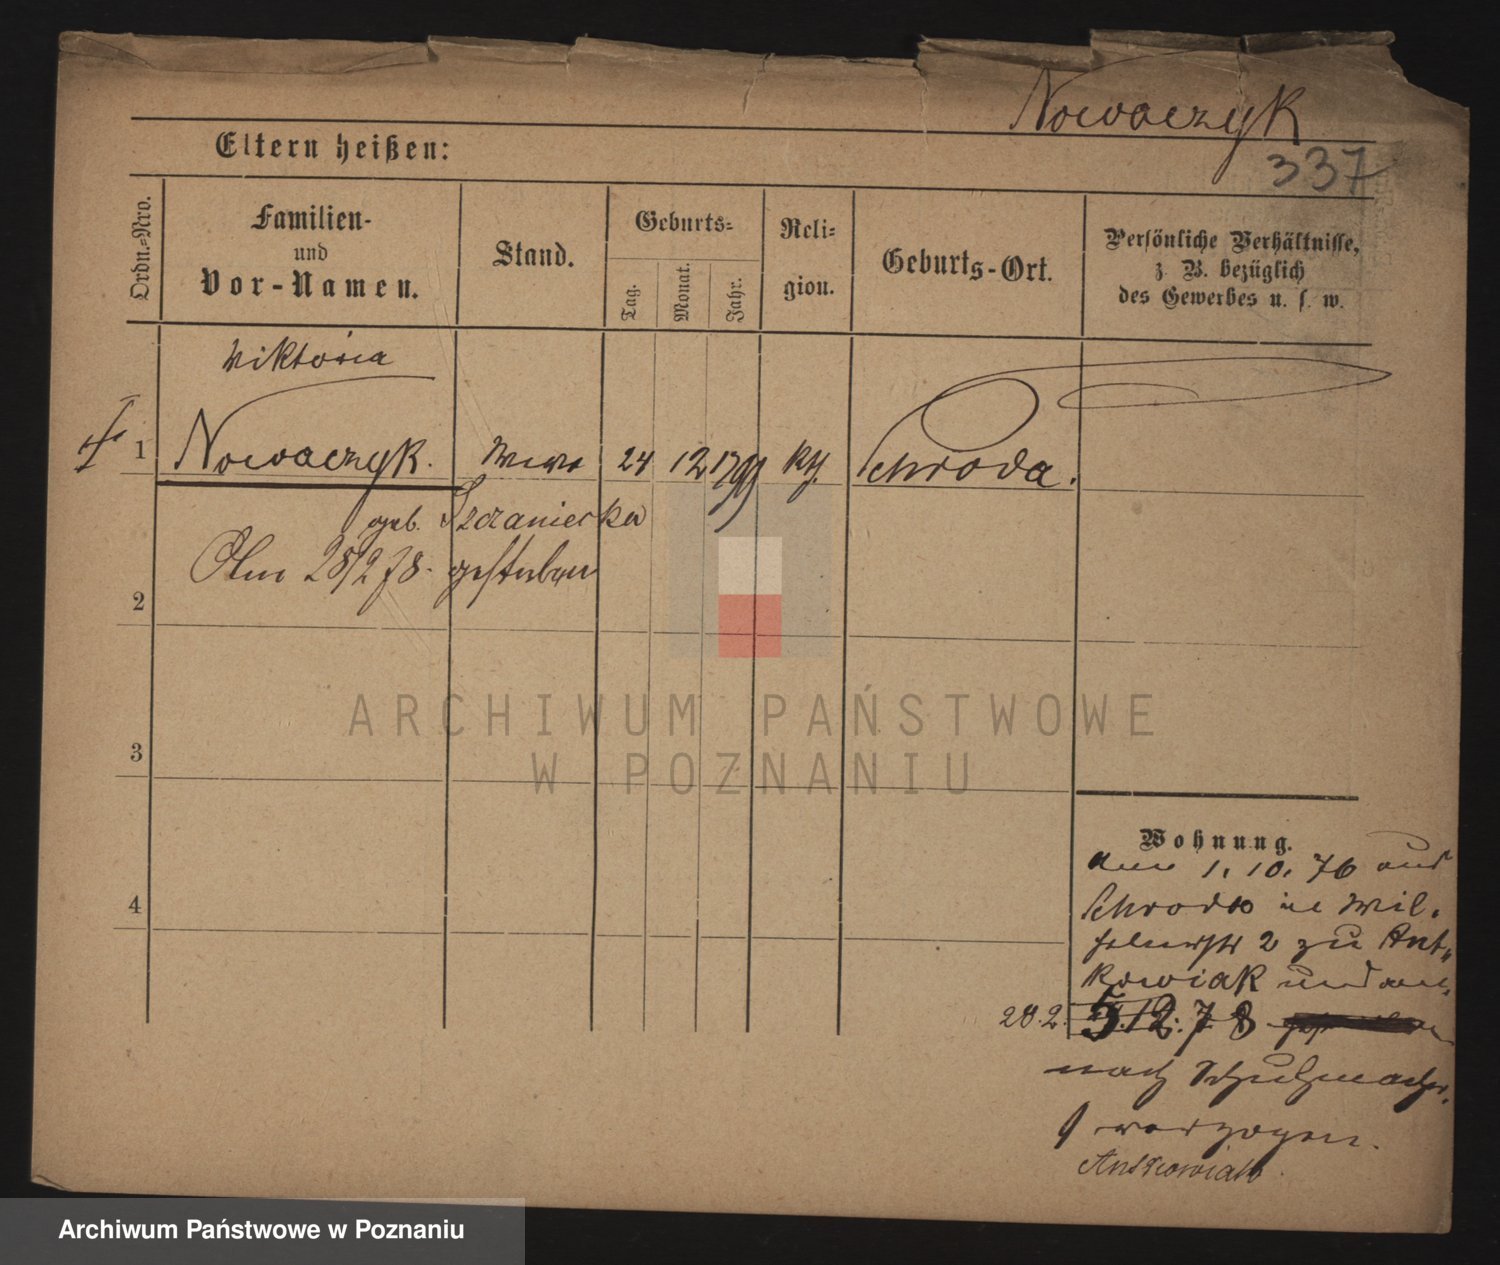 Nowaczyk
337
Eltern heißen:
Ordn.=Nro.
Familien-
und
Vor-Namen.
Stand.
Geburts=
Tag.
Monat.
Jahr.
Reli=
gion.
Geburts-Ort.
Persönliche Verhältnisse,
z. B. bezüglich
des Gewerbes u. s. w.
Wiktoria
1 Nowaczyk. Wwe 24 12 1799 kth. Schroda.
geb. Szczaniecka
Am 28/2 78. gestorben
2
3
4
ARCHIWUM PAŃSTWOWE
W POZNANIU
Wohnung.
am 1. 10. 76 aus
Schroda in Wil-
helmstr 2 zu Ant-
kowiak und am
28.2. 5.12.78
nach Schuhmacherstr.
9 verzogen.
Antkowiak
Archiwum Państwowe w Poznaniu